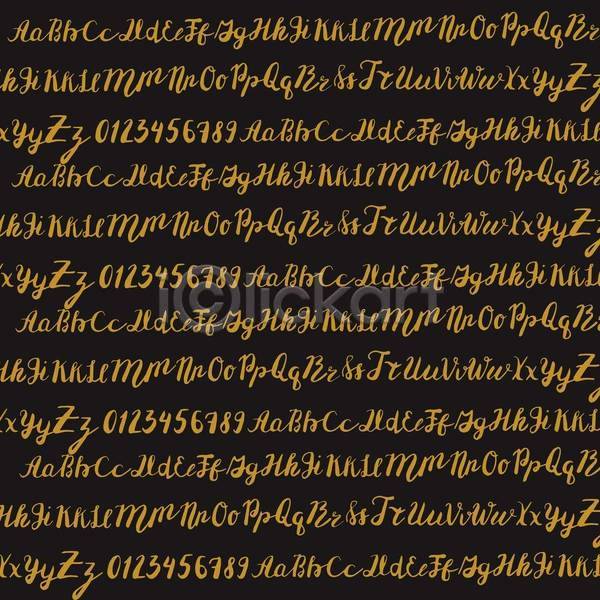 AaBbCcDdEeFfGgHhIiKkLlMmNnOoPpQqRr
HhIiKkLlMmNnOoPpQqRrSsTtUuVvWwXxYy
XxYyZz 0123456789 AaBbCcDdEeFfGgHhIiKkLl
AaBbCcDdEeFfGgHhIiKkLlMmNnOoPpQqRr
HhIiKkLlMmNnOoPpQqRrSsTtUuVvWwXxYy
XxYyZz 0123456789 AaBbCcDdEeFfGgHhIiKkLl
iclickart
AaBbCcDdEeFfGgHhIiKkLlMmNnOoPpQqRr
HhIiKkLlMmNnOoPpQqRrSsTtUuVvWwXxYy
XxYyZz 0123456789 AaBbCcDdEeFfGgHhIiKkLl
AaBbCcDdEeFfGgHhIiKkLlMmNnOoPpQqRr
HhIiKkLlMmNnOoPpQqRrSsTtUuVvWwXxYy
XxYyZz 0123456789 AaBbCcDdEeFfGgHhIiKkLl